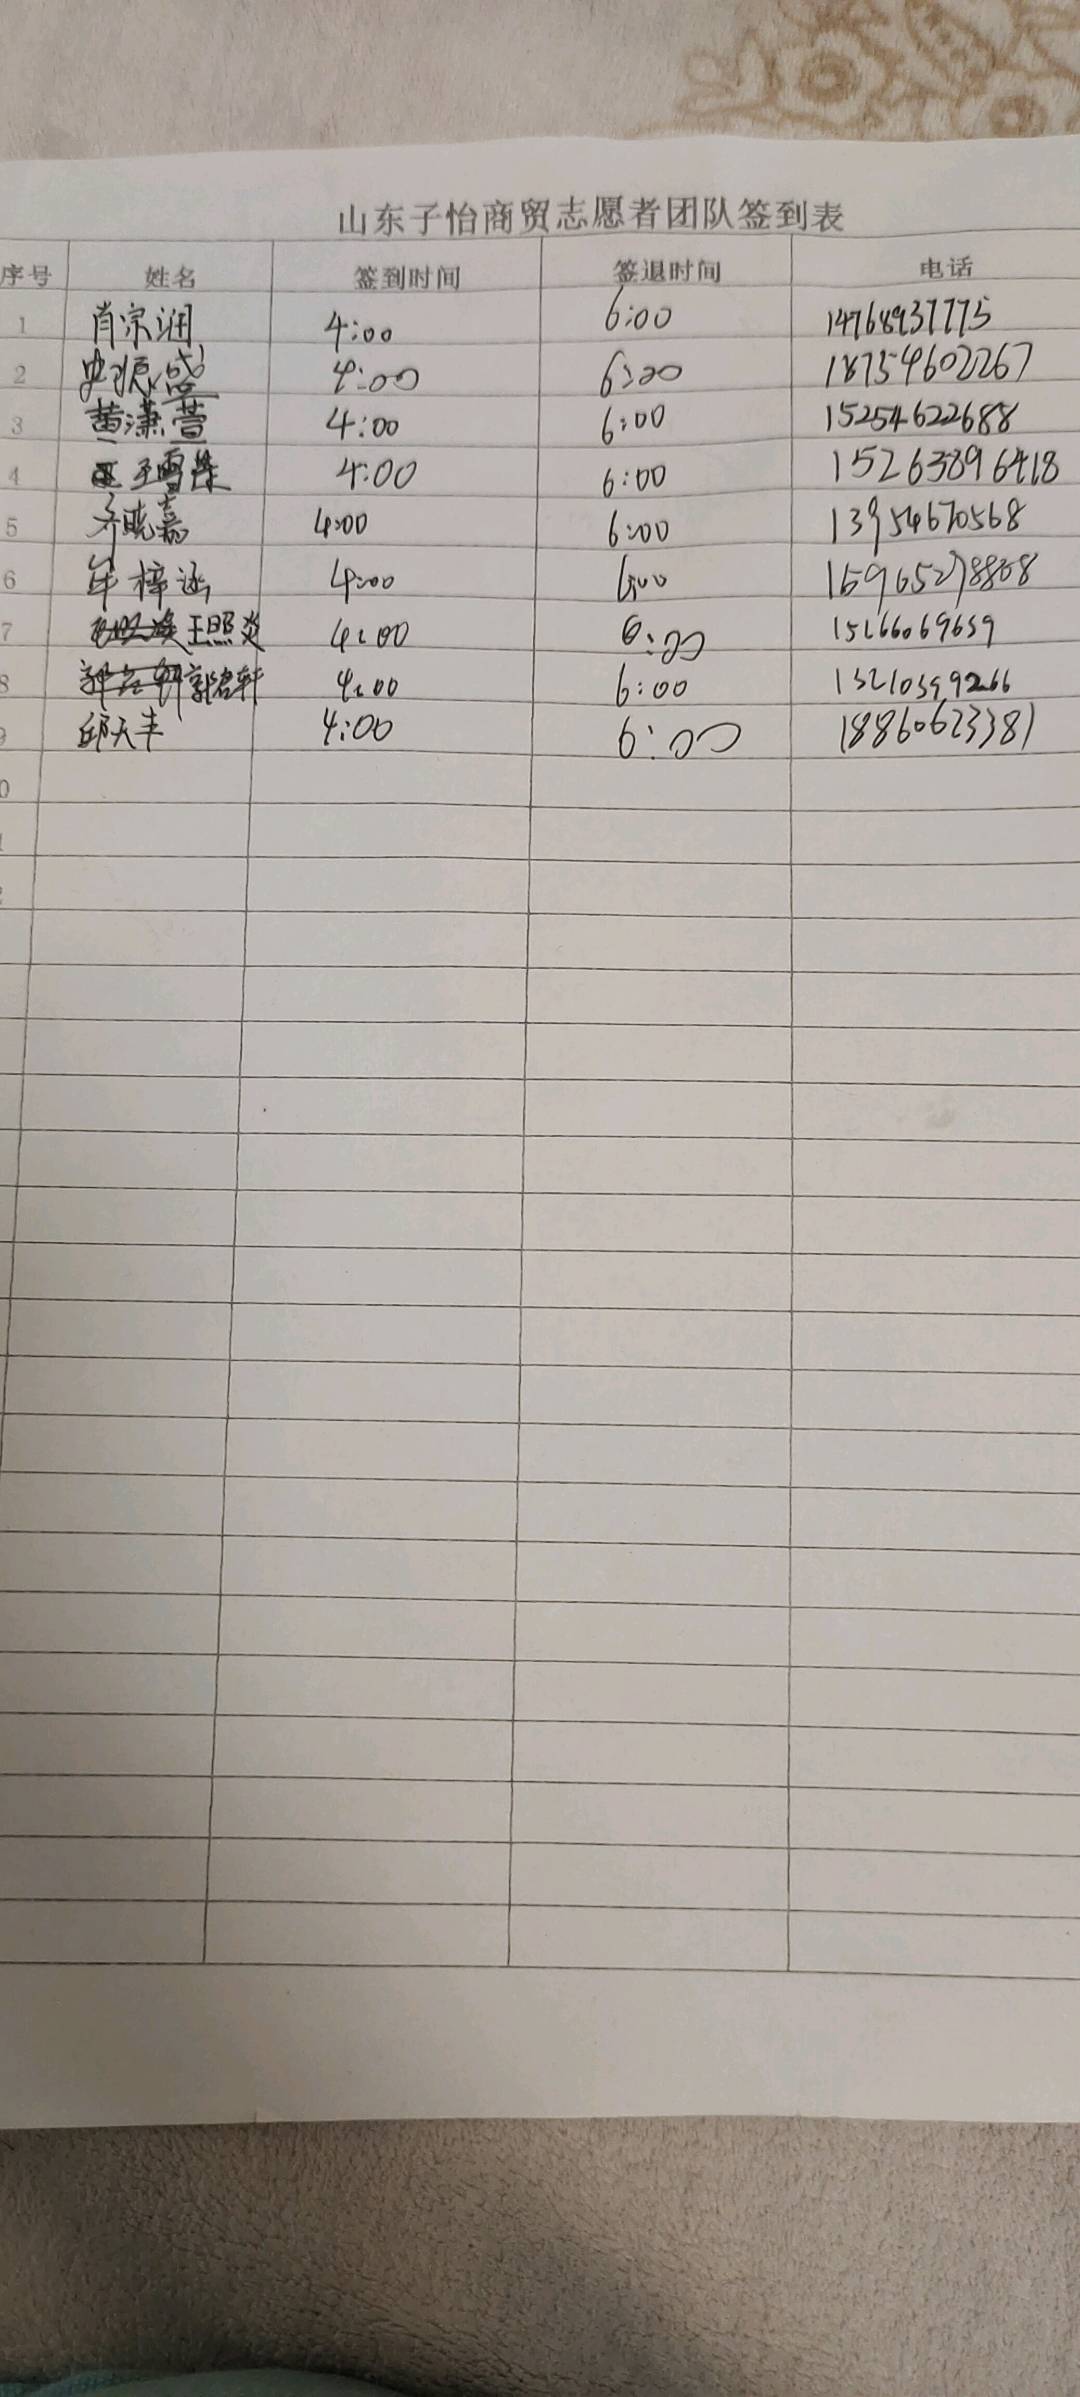 山东子怡商贸志愿者团队签到表
序号 姓名 签到时间 签退时间 电话
1 肖宗润 4:00 6:00 14768937775
2 4:00 6:00 18754602267
3 黄潇萱 4:00 6:00 15254622688
4 王雪 4:00 6:00 15263896418
5 齐晓嘉 4:00 6:00 13954670568
6 牟梓涵 4:00 6:00
7 王照炎 4:00 6:00 15266069659
8 郭君轩 4:00 6:00
9 邱天丰 4:00 6:00 18860623381